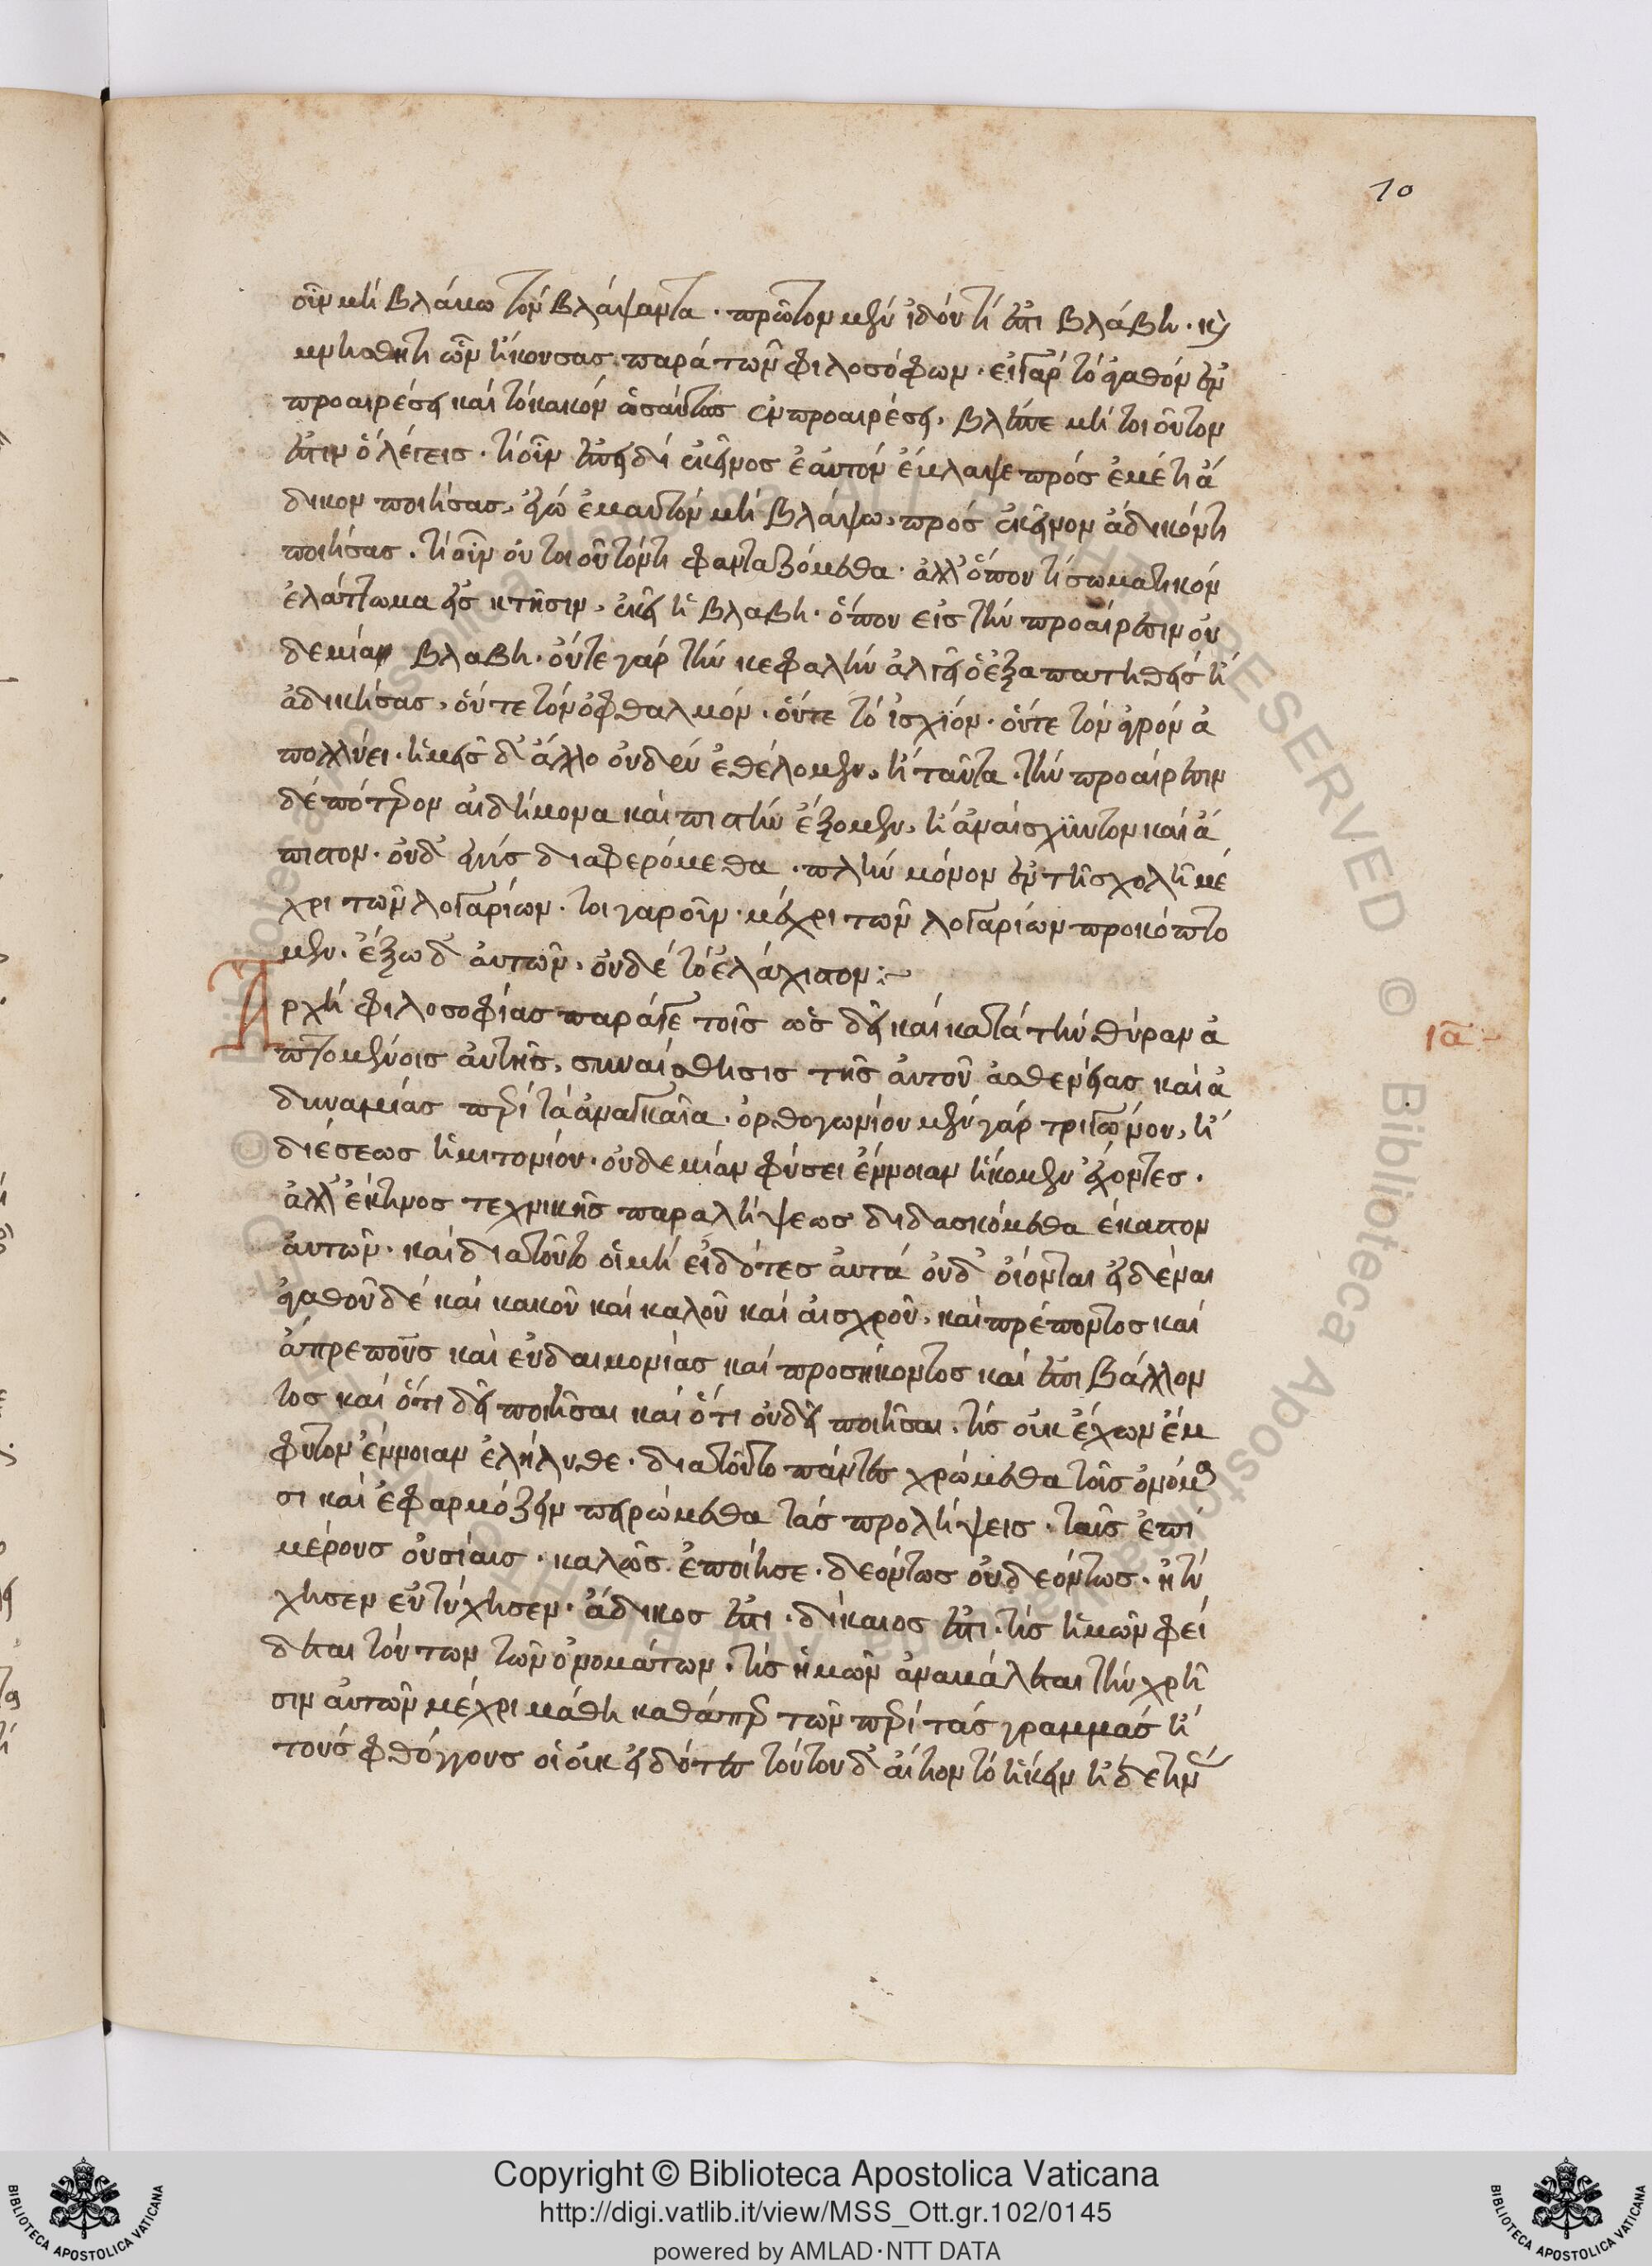 10
οὖν μὴ βλάψω τὸν βλάψαντα· πρῶτον μὲν ἰδοὺ τί ἐστι βλάβη· καὶ
μνήσθητι ὧν ἤκουσας παρὰ τῶν φιλοσόφων· εἰ γὰρ τὸ ἀγαθὸν ἐν
προαιρέσει καὶ τὸ κακὸν ὡσαύτως ἐν προαιρέσει, βλέπε μὴ τοιοῦτον
ἐστιν ὃ λέγεις· τί οὖν ἐπειδὴ ἐκεῖνος ἑαυτὸν ἔβλαψε πρὸς ἐμέ τι ἄ
δικον ποιήσας, ἐγὼ ἐμαυτὸν μὴ βλάψω, πρὸς ἐκεῖνον ἄδικόν τι
ποιήσας· τί οὖν οὐ τοιοῦτόν τι φανταζόμεθα· ἀλλ' ὅπου τι σωματικὸν
ἐλάττωμα εἰς κτῆσιν, ἐκεῖ ἡ βλάβη· ὅπου εἰς τὴν προαίρεσιν οὐ
δεμία βλάβη· οὔτε γὰρ τὴν κεφαλὴν ἀλγεῖ ὁ ἐξαπατηθεὶς ἢ
ἀδικήσας, οὔτε τὸν ὀφθαλμόν· οὔτε τὸ ἰσχίον· οὔτε τὸν ἀγρὸν ἀ
πολλύει· ἡμεῖς δ' ἄλλο οὐδὲν ἐθέλομεν, ἢ ταῦτα· τὴν προαίρεσιν
δὲ πότερον αἰδήμονα καὶ πιστὴν ἕξομεν, ἢ ἀναίσχυντον καὶ ἄ
πιστον· οὐδ' ἐγγὺς διαφερόμεθα· πλὴν μόνον ἐν τῇ σχολῇ μέ
χρι τῶν λογαρίων· τοιγαροῦν μέχρι τῶν λογαρίων προκόπτο
μεν· ἔξω δ' αὐτῶν, οὐδὲ τὸ ἐλάχιστον:~
Ἀρχὴ φιλοσοφίας παρά γε τοῖς ὡς δεῖ καὶ κατὰ τὴν θύραν ἁ
ια
πτομένοις αὐτῆς, συναίσθησις τῆς αὐτοῦ ἀσθενείας καὶ ἀ
δυναμίας περὶ τὰ ἀναγκαῖα· ὀρθογωνίου μὲν γὰρ τριγώνου, ἢ
διέσεως ἡμιτονίου· οὐδεμίαν φύσει ἔννοιαν ἥκομεν ἔχοντες·
ἀλλ' ἔκ τινος τεχνικῆς παραλήψεως διδασκόμεθα ἕκαστον
αὐτῶν· καὶ διατοῦτο οἱ μὴ εἰδότες αὐτὰ οὐδ' οἴονται εἰδέναι
ἀγαθοῦ δὲ καὶ κακοῦ καὶ καλοῦ καὶ αἰσχροῦ, καὶ πρέποντος καὶ
ἀπρεποῦς καὶ εὐδαιμονίας καὶ προσήκοντος καὶ ἐπιβάλλον
τος καὶ ὅτι δεῖ ποιῆσαι καὶ ὅτι οὐ δεῖ ποιῆσαι, τίς οὐκ ἔχων ἔμ
φυτον ἔννοιαν ἐλήλυθε· διατοῦτο πάντες χρώμεθα τοῖς ὀνόμα
σι καὶ ἐφαρμόζειν πειρώμεθα τὰς προλήψεις· ταῖς ἐπὶ
μέρους οὐσίαις· καλῶς ἐποίησε· δεόντως οὐ δεόντως· ἠτύ
χησεν εὐτύχησεν· ἄδικος ἐστι· δίκαιος ἐστι· τίς ἡμῶν φεί
δεται τούτων τῶν ὀνομάτων· τίς ἡμῶν ἀναβάλεται τὴν χρῆ
σιν αὐτῶν μέχρι μάθῃ καθάπερ τῶν περὶ τὰς γραμμὰς ἢ
τοὺς φθόγγους οἱ οὐκ εἰδότες τούτου δ' αἴτιον τὸ ἥκειν ἤδε τιν
© Biblioteca Apostolica Vaticana ALL RIGHTS RESERVED
Copyright © Biblioteca Apostolica Vaticana
http://digi.vatlib.it/view/MSS_Ott.gr.102/0145
powered by AMLAD·NTT DATA
BIBLIOTECA APOSTOLICA VATICANA
BIBLIOTECA APOSTOLICA VATICANA